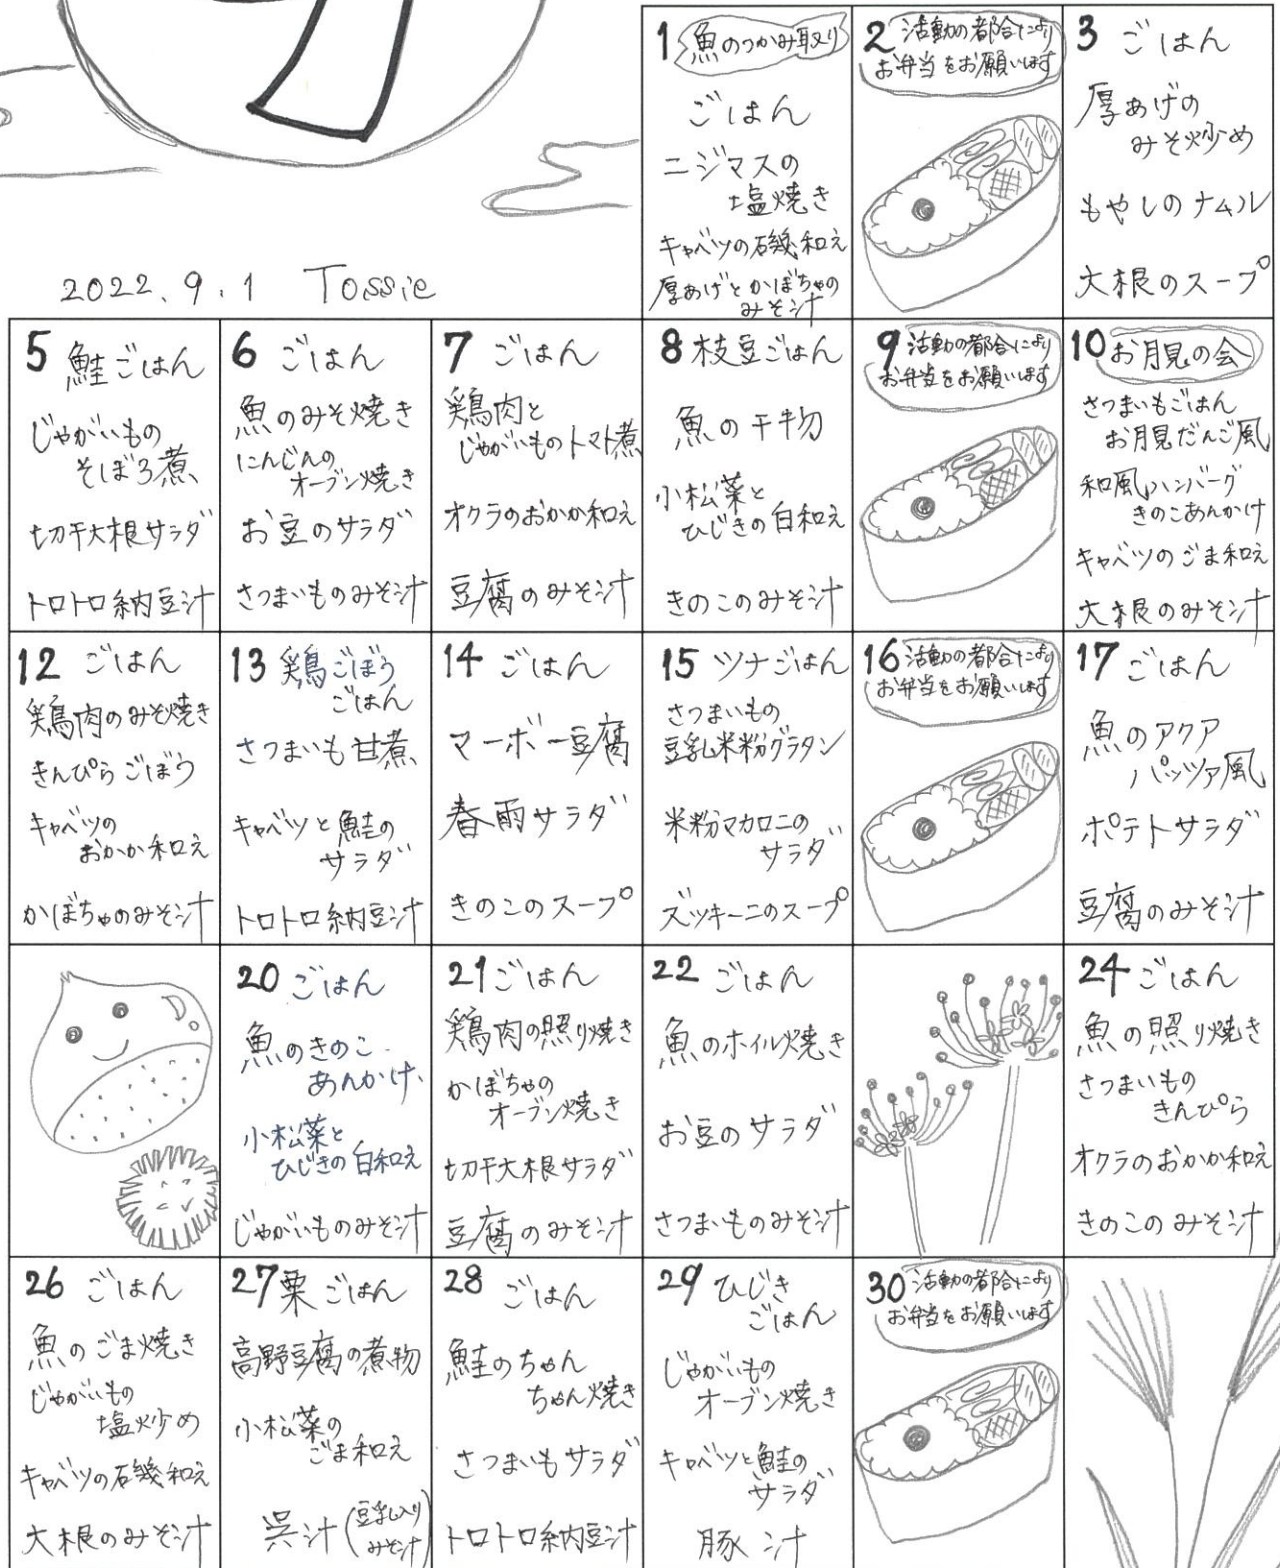 2022.9.1 Tossie
1 魚のつかみ取り
ごはん
ニジマスの
塩焼き
キャベツの磯和え
厚あげとかぼちゃの
みそ汁
2 活動の都合により
お弁当をお願いします
3 ごはん
厚あげの
みそ炒め
もやしのナムル
大根のスープ
5 鮭ごはん
じゃがいもの
そぼろ煮
切干大根サラダ
トロトロ納豆汁
6 ごはん
魚のみそ焼き
にんじんの
オーブン焼き
お豆のサラダ
さつまいものみそ汁
7 ごはん
鶏肉と
じゃがいものトマト煮
オクラのおかか和え
豆腐のみそ汁
8 枝豆ごはん
魚の干物
小松菜と
ひじきの白和え
きのこのみそ汁
9 活動の都合により
お弁当をお願いします
10 お月見の会
さつまいもごはん
お月見だんご風
和風ハンバーグ
きのこあんかけ
キャベツのごま和え
大根のみそ汁
12 ごはん
鶏肉のみそ焼き
きんぴらごぼう
キャベツの
おかか和え
かぼちゃのみそ汁
13 鶏ごぼう
ごはん
さつまいも甘煮
キャベツと鮭の
サラダ
トロトロ納豆汁
14 ごはん
マーボー豆腐
春雨サラダ
きのこのスープ
15 ツナごはん
さつまいもの
豆乳米粉グラタン
米粉マカロニの
サラダ
ズッキーニのスープ
16 活動の都合により
お弁当をお願いします
17 ごはん
魚のアクア
パッツァ風
ポテトサラダ
豆腐のみそ汁
20 ごはん
魚のきのこ
あんかけ
小松菜と
ひじきの白和え
じゃがいものみそ汁
21 ごはん
鶏肉の照り焼き
かぼちゃの
オーブン焼き
切干大根サラダ
豆腐のみそ汁
22 ごはん
魚のホイル焼き
お豆のサラダ
さつまいものみそ汁
24 ごはん
魚の照り焼き
さつまいもの
きんぴら
オクラのおかか和え
きのこのみそ汁
26 ごはん
魚のごま焼き
じゃがいもの
塩炒め
キャベツの磯和え
大根のみそ汁
27 栗ごはん
高野豆腐の煮物
小松菜の
ごま和え
呉汁(豆乳入り
みそ汁)
28 ごはん
鮭のちゃん
ちゃん焼き
さつまいもサラダ
トロトロ納豆汁
29 ひじき
ごはん
じゃがいもの
オーブン焼き
キャベツと鮭の
サラダ
豚汁
30 活動の都合により
お弁当をお願いします